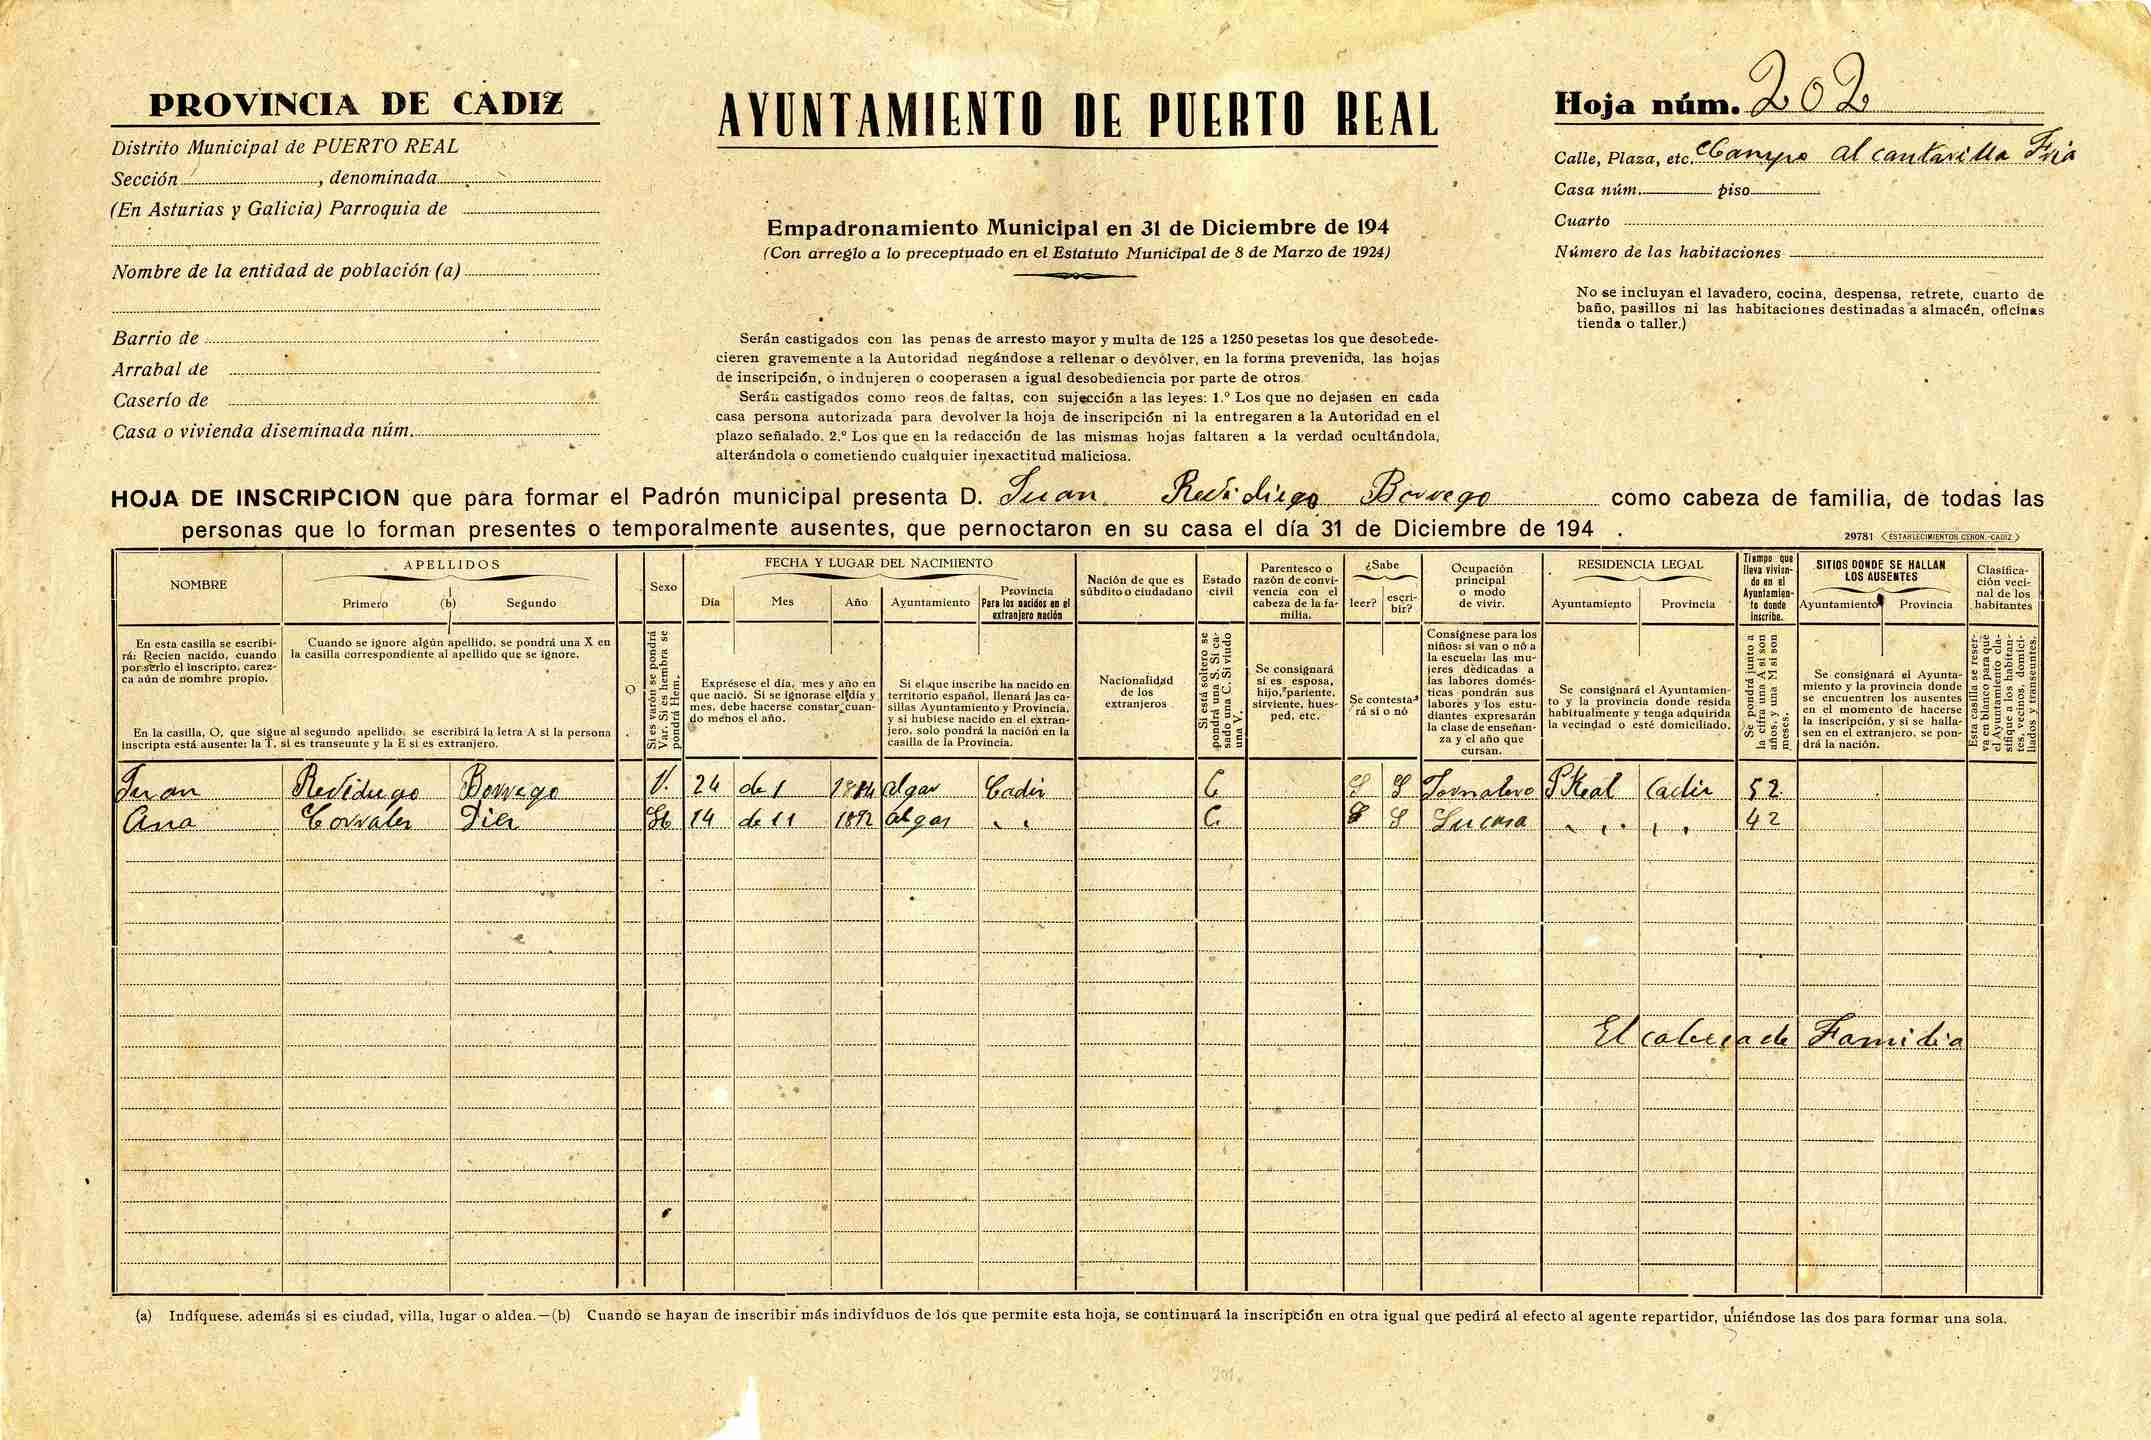 PROVINCIA DE CADIZ
Distrito Municipal de PUERTO REAL
Sección , denominada
(En Asturias y Galicia) Parroquia de
Nombre de la entidad de población (a)
Barrio de
Arrabal de
Caserío de
Casa o vivienda diseminada núm.
AYUNTAMIENTO DE PUERTO REAL
Empadronamiento Municipal en 31 de Diciembre de 194
(Con arreglo a lo preceptuado en el Estatuto Municipal de 8 de Marzo de 1924)
Serán castigados con las penas de arresto mayor y multa de 125 a 1250 pesetas los que desobede-
cieren gravemente a la Autoridad negándose a rellenar o devolver, en la forma prevenida, las hojas
de inscripción, o indujeren o cooperasen a igual desobediencia por parte de otros
Serán castigados como reos de faltas, con sujección a las leyes: 1.º Los que no dejasen en cada
casa persona autorizada para devolver la hoja de inscripción ni la entregaren a la Autoridad en el
plazo señalado. 2.º Los que en la redacción de las mismas hojas faltaren a la verdad ocultándola,
alterándola o cometiendo cualquier inexactitud maliciosa.
Hoja núm. 202
Calle, Plaza, etc. Campo Alcantarilla Fria
Casa núm. piso
Cuarto
Número de las habitaciones
No se incluyan el lavadero, cocina, despensa, retrete, cuarto de
baño, pasillos ni las habitaciones destinadas a almacén, oficinas
tienda o taller.)
HOJA DE INSCRIPCION que para formar el Padrón municipal presenta D. Juan Borrego como cabeza de familia, de todas las
personas que lo forman presentes o temporalmente ausentes, que pernoctaron en su casa el día 31 de Diciembre de 194 .
29781 (ESTABLECIMIENTOS CERON.-CADIZ)
NOMBRE
APELLIDOS
Primero (b) Segundo
Sexo
FECHA Y LUGAR DEL NACIMIENTO
Día Mes Año Ayuntamiento
Provincia
Para los nacidos en el
extranjero nación
Nación de que es
súbdito o ciudadano
Estado
civil
Parentesco o
razón de convi-
vencia con el
cabeza de la fa-
milia.
¿Sabe
leer?
escri-
bir?
Ocupación
principal
o modo
de vivir.
RESIDENCIA LEGAL
Ayuntamiento Provincia
Tiempo que
lleva vivien-
do en el
Ayuntamien-
to donde
inscribe.
SITIOS DONDE SE HALLAN
LOS AUSENTES
Ayuntamiento Provincia
Clasifica-
ción veci-
nal de los
habitantes
En esta casilla se escribi-
rá: Recien nacido, cuando
por serlo el inscripto, carez-
ca aún de nombre propio.
Cuando se ignore algún apellido, se pondrá una X en
la casilla correspondiente al apellido que se ignore.
En la casilla, O, que sigue al segundo apellido, se escribirá la letra A si la persona
inscripta está ausente: la T, si es transeunte y la E si es extranjero.
O
Si es varón se pondrá
Var. Si es hembra se
pondrá Hem.
Expresese el día, mes y año en
que nació. Si se ignorase el día y
mes, debe hacerse constar cuan-
do menos el año.
Si el que inscribe ha nacido en
territorio español, llenará las ca-
sillas Ayuntamiento y Provincia,
y si hubiese nacido en el extran-
jero, solo pondrá la nación en la
casilla de la Provincia.
Nacionalidad
de los
extranjeros
Si está soltero se
pondrá una S. Si ca-
sado una C. Si viudo
una V.
Se consignará
si es esposa,
hijo, pariente,
sirviente, hues-
ped, etc.
Se contesta-
rá si o nó
Consígnese para los
niños: si van o nó a
la escuela: las mu-
jeres dedicadas a
las labores domés-
ticas pondrán sus
labores y los estu-
diantes expresarán
la clase de enseñan-
za y el año que
cursan.
Se consignará el Ayuntamien-
to y la provincia donde resida
habitualmente y tenga adquirida
la vecindad o esté domiciliado.
Se pondrá junto a
la cifra una A si son
años, y una M si son
meses.
Se consignará el Ayunta-
miento y la provincia donde
se encuentren los ausentes
en el momento de hacerse
la inscripción, y si se halla-
sen en el extranjero, se pon-
drá la nación.
Esta casilla se reser-
va en blanco para que
el Ayuntamiento cla-
sifique a los habitan-
tes, vecinos, domici-
liados y transeuntes.
Juan Borrego V. 24 de 1 algar Cadiz C S S Jornalero P Real Cadiz 52
Ana Corrales Diez H 14 de 11 1892 algar " C S S Su casa " " 42
El cabeza de Familia
(a) Indíquese. además si es ciudad, villa, lugar o aldea.—(b) Cuando se hayan de inscribir más indivíduos de los que permite esta hoja, se continuará la inscripción en otra igual que pedirá al efecto al agente repartidor, uniéndose las dos para formar una sola.